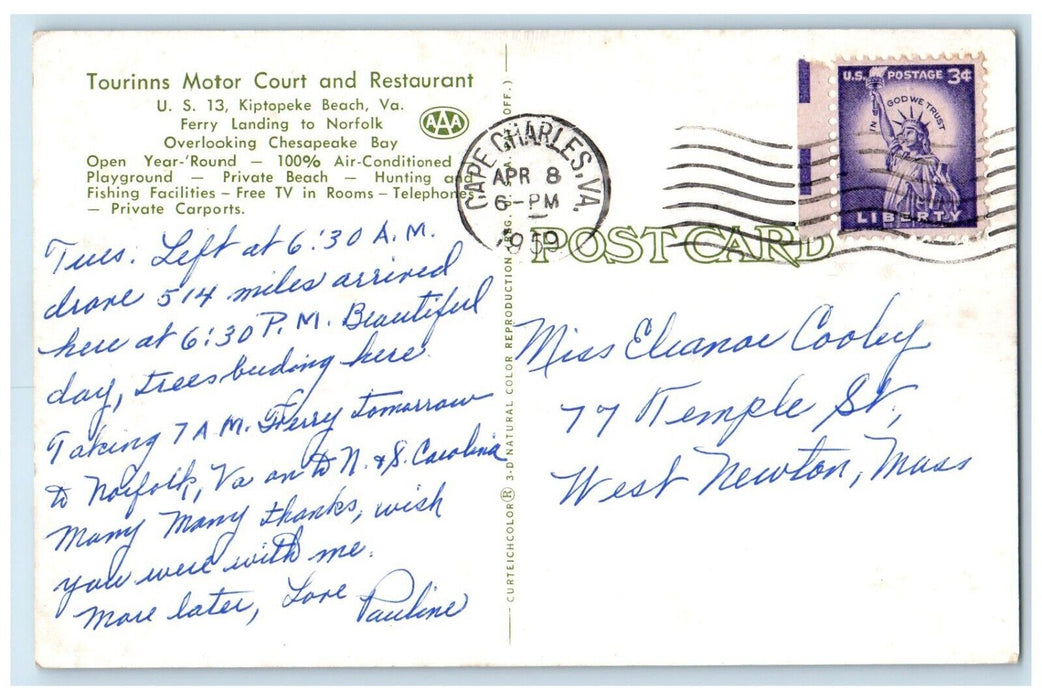 Tourinns Motor Court and Restaurant
U. S. 13, Kiptopeke Beach, Va.
Ferry Landing to Norfolk
Overlooking Chesapeake Bay
AAA
Open Year-'Round — 100% Air-Conditioned
Playground — Private Beach — Hunting and
Fishing Facilities – Free TV in Rooms – Telephones
— Private Carports.
Tues. Left at 6:30 A.M.
drove 514 miles arrived
here at 6:30 P.M. Beautiful
day, trees buding here.
Taking 7 A M. Ferry tomorrow
to Norfolk, Va on to N. & S. Carolina
Many Many thanks, wish
you were with me.
More later, Love Pauline
CURTEICHCOLOR® 3-D NATURAL COLOR REPRODUCTION OFF.)
CAPE CHARLES, VA.
APR 8
6 - PM
1959
U.S. POSTAGE 3¢
IN GOD WE TRUST
LIBERTY
POST CARD
Miss Eleanor Cooley
77 Temple St,
West Newton, Mass